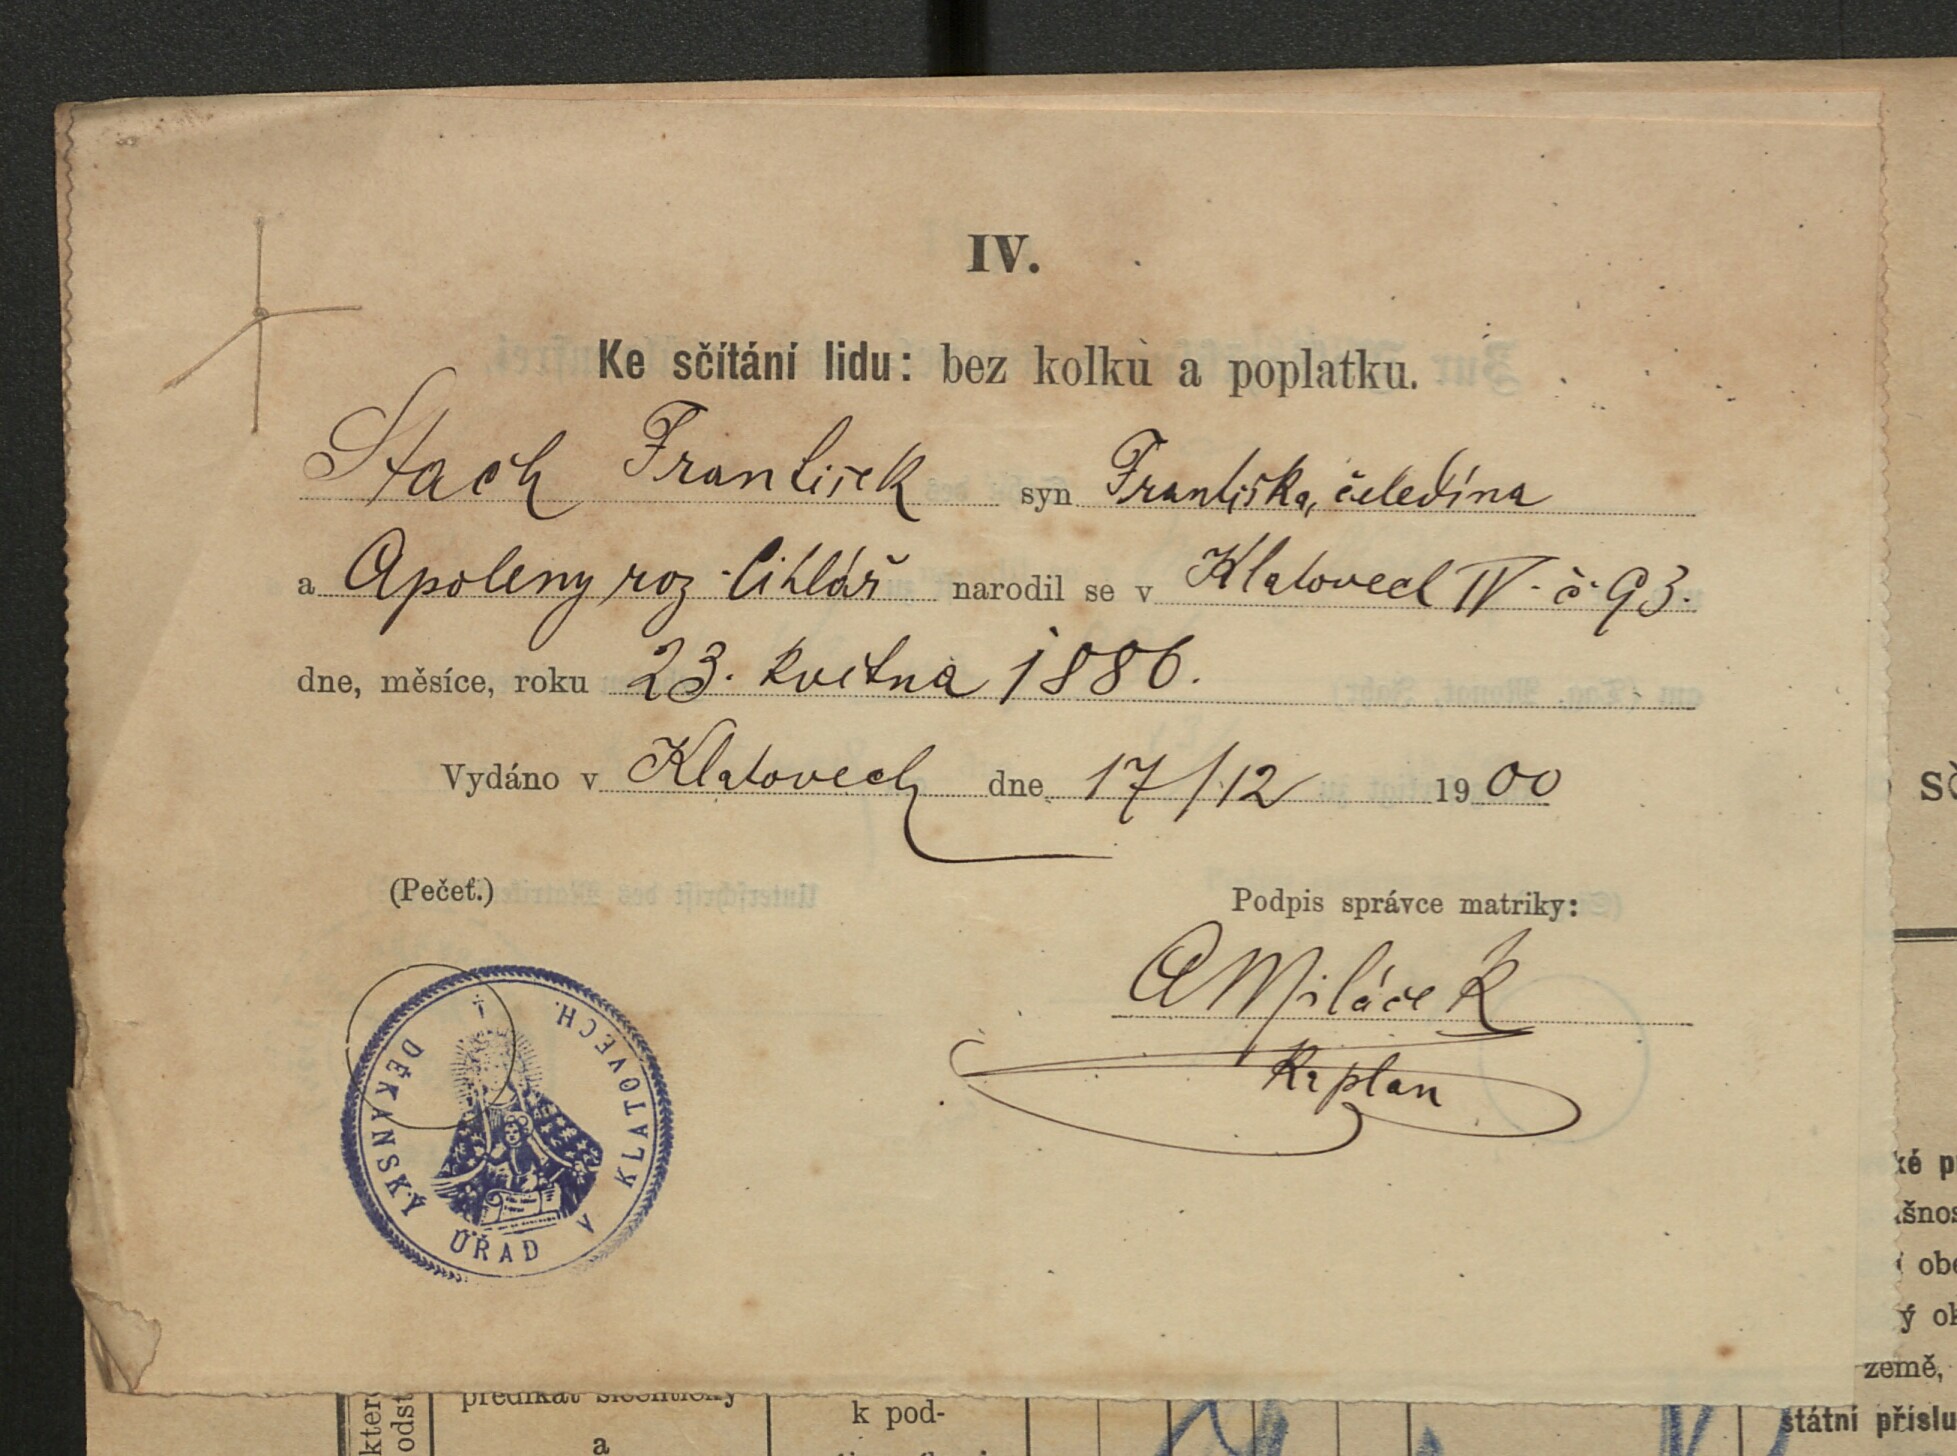 IV.
Ke sčítání lidu: bez kolků a poplatku.
Stach František syn Františka, čeledína
a Apoleny roz. Cihlář narodil se v Klatovech IV. č 93.
dne, měsíce, roku 23. května 1886.
Vydáno v Klatovech dne 17/12 1900
(Pečeť.)
Podpis správce matriky:
A Miláček
Kaplan
DĚKANSKÝ ÚŘAD V KLATOVECH.
sč
ké p
šnos
obe
ý ok
země,
státní příslu
k pod-
a